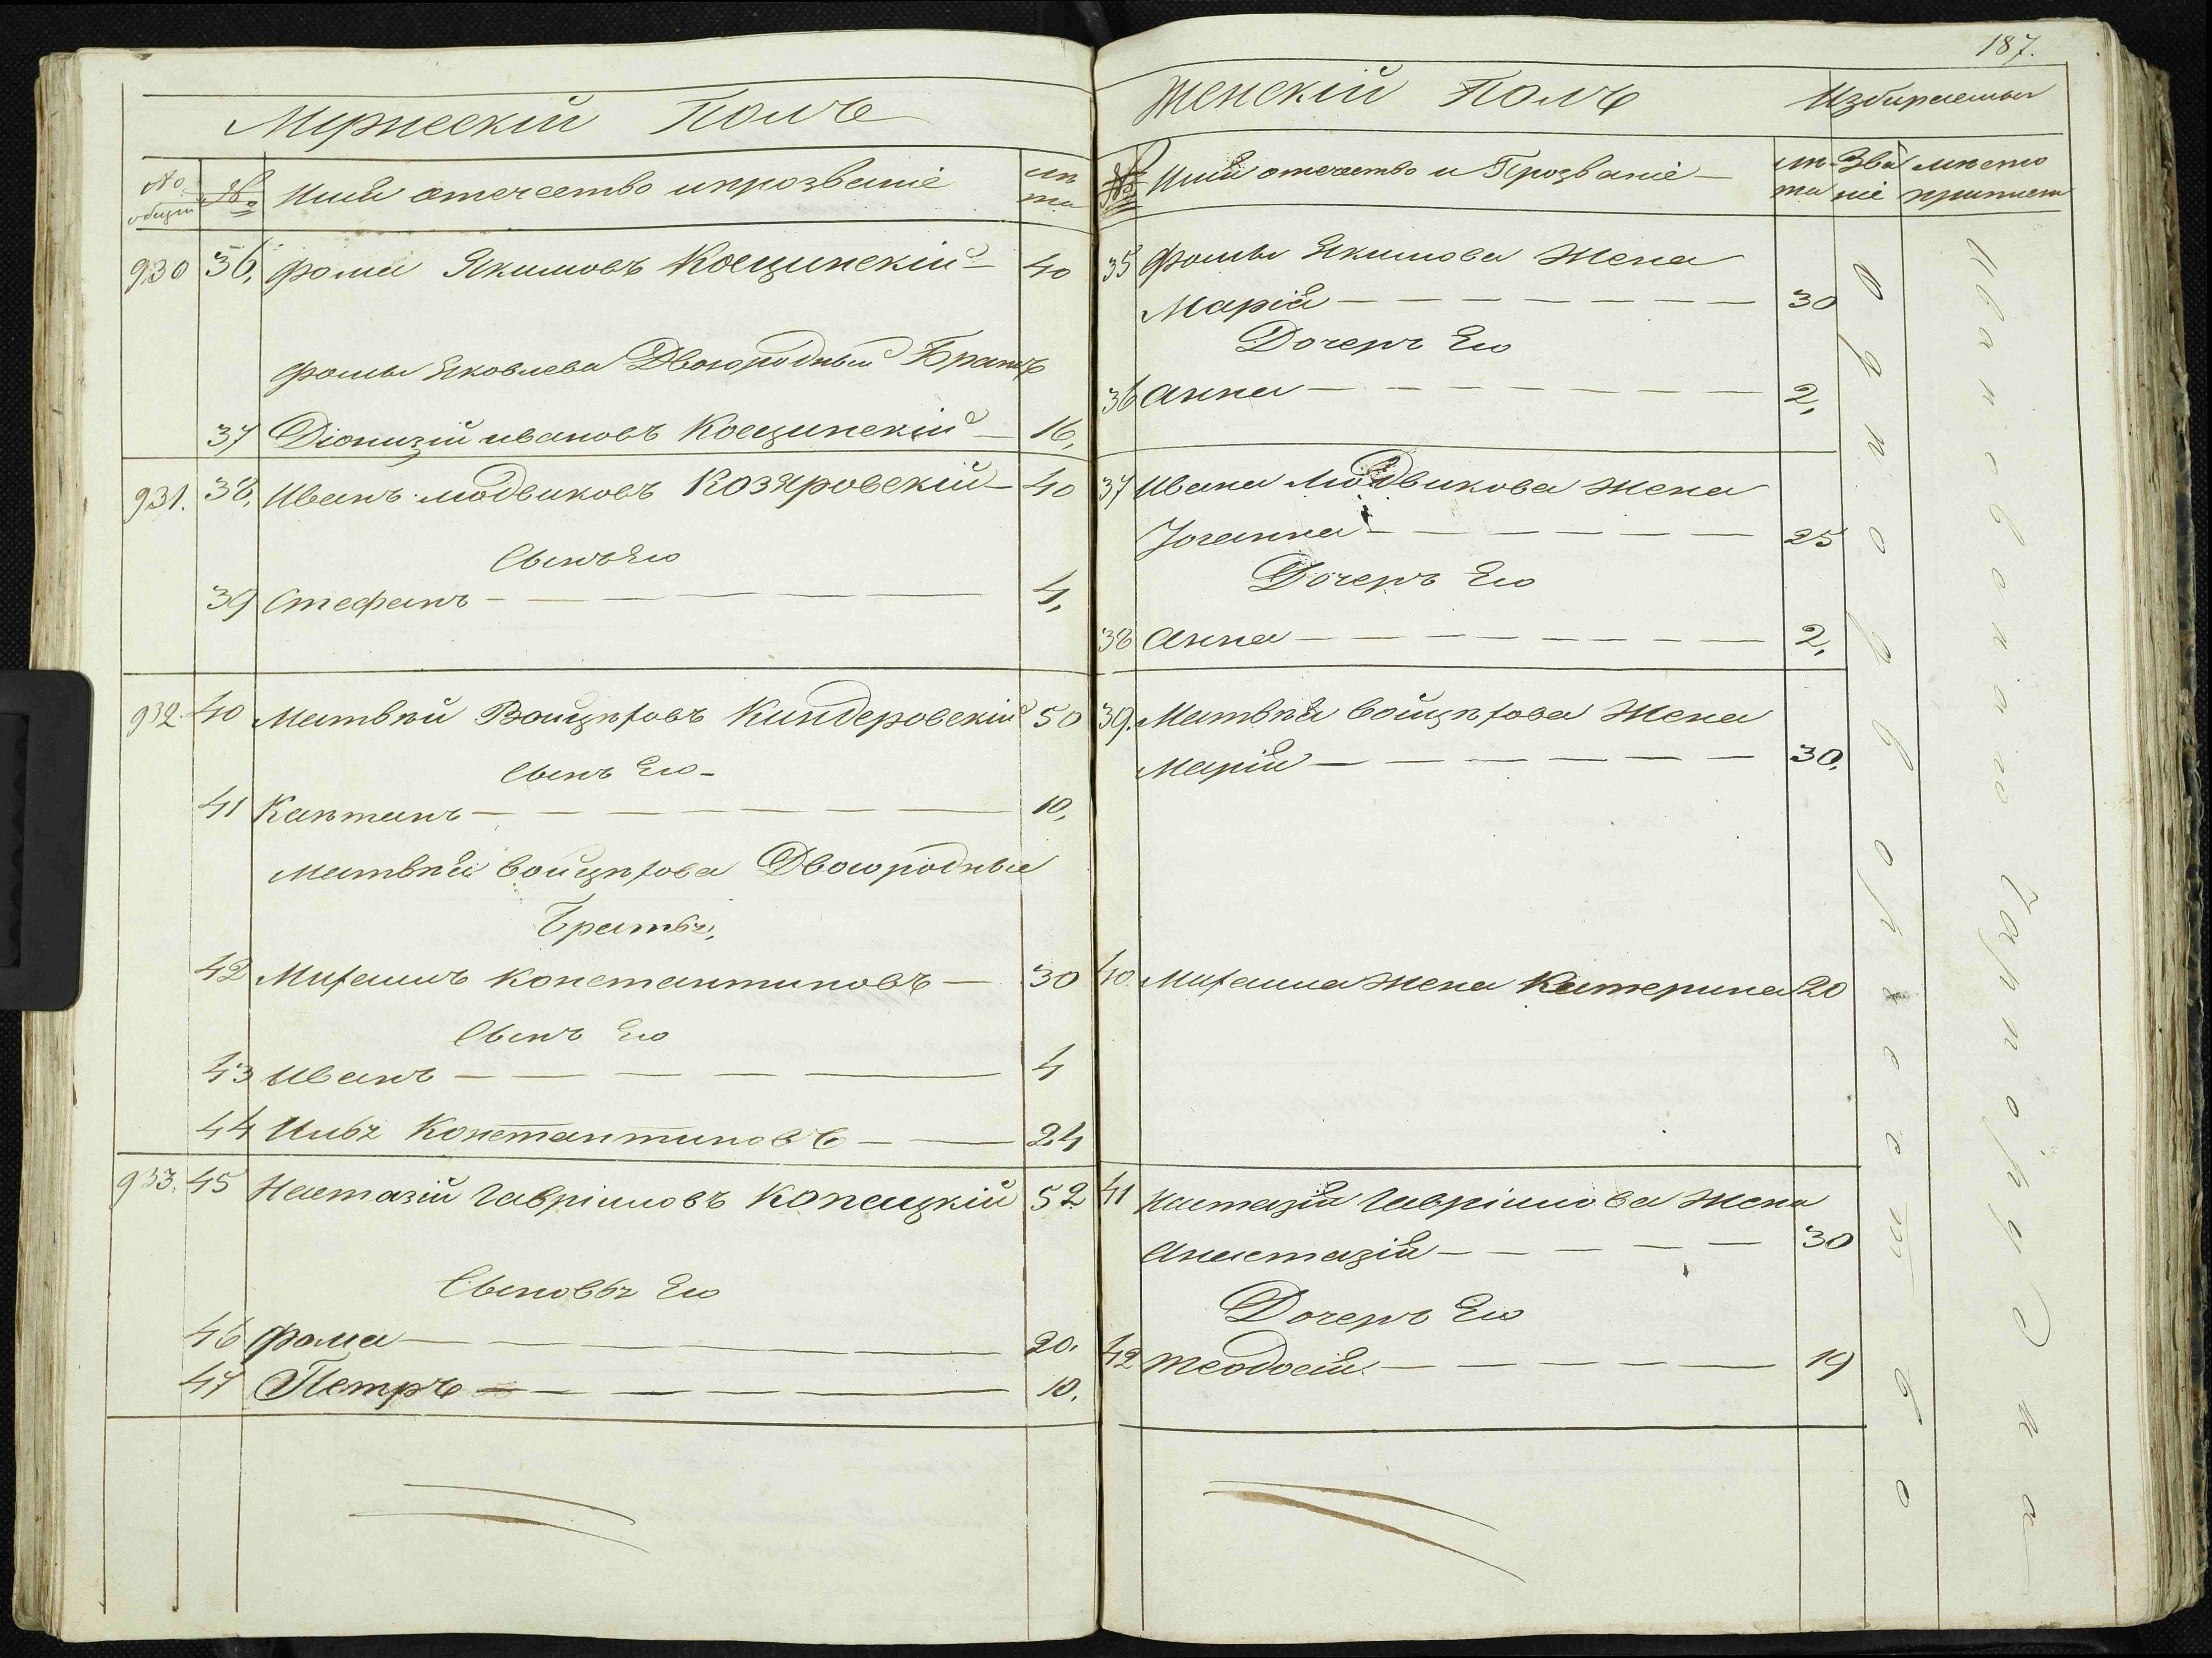 Мужескій Полъ
No общій
№
Имя отечество и прозваніе
лѣта
930 36, Фома Якимовъ Косцинскій 40
Фомы Яковлева Двоюродный Братъ
37 Діонизій ивановъ Косцинскій 16,
931. 38, Иванъ людвиковъ Козяровскій 40
Сынъ Его
39 Стефанъ 4,
932. 40 Матвѣй Войцѣховъ Киндеровскій 50
Сынъ Его
41 Каѣтанъ 10,
Матвѣя Войцѣхова Двоюродные
Братья,
42 Михаилъ Константиновъ 30
Сынъ Его
43 Иванъ 4
44 Илья Константиновъ 24
933. 45 Настазій Гавріиловъ Копацкій 52
Сыновья Его
46 Фома 20.
47 Петръ 10.
187.
Женскій Полъ
Избираемыя
№
Имя отечество и Прозваніе
лѣта
Званіе
мѣсто приписки
35 Фомы Якимова Жена
Марія 30
Дочерь Его
36 Анна 2,
37 Ивана Людвикова Жена
Іоганна 25
Дочерь Его
38 Анна 2,
39. Матвѣя Войцѣхова Жена
Марія 30,
40. Михаила Жена Катерина 20
41 Настазія Гавріилова Жена
Анастазія 30
Дочерь Его
42 Теодосія 19
Однодворчество